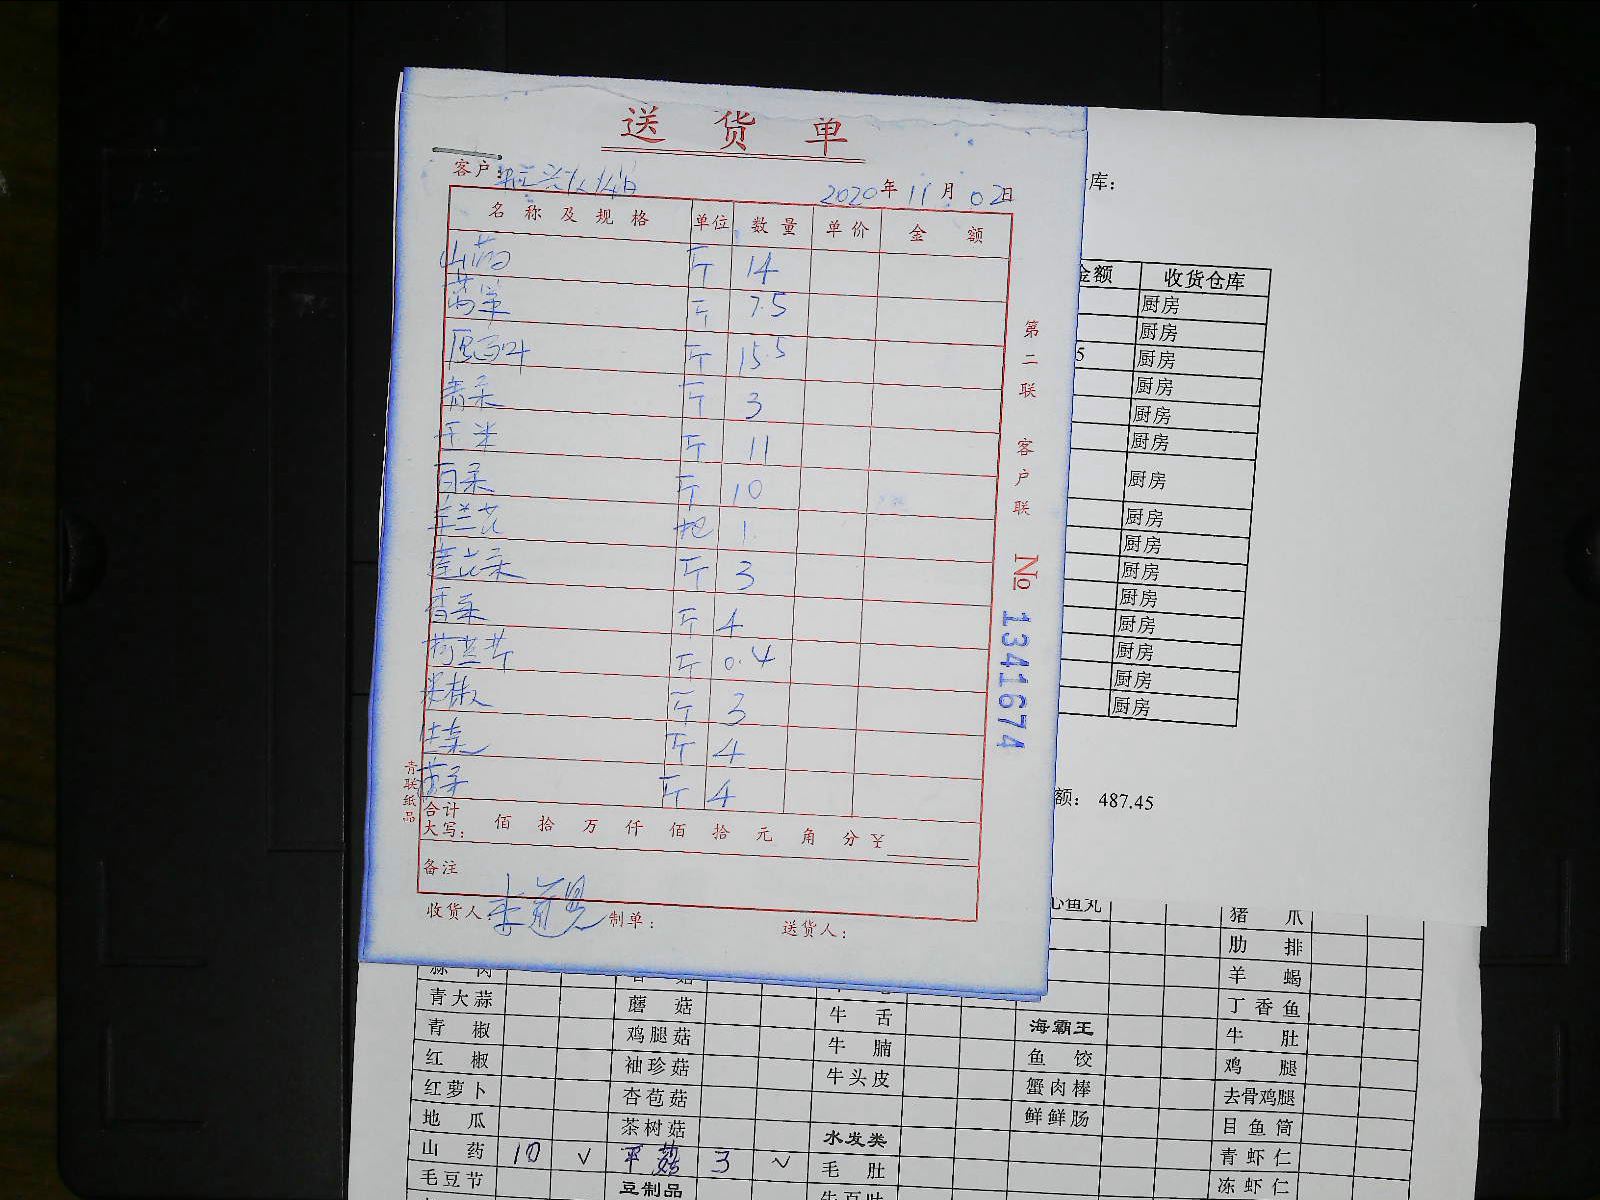 送货单
客户：
2020年11月02日
名称及规格 单位 数量 单价 金额
山药 斤 14
莴笋 斤 7.5
斤 15.5
青菜 斤 3
玉米 斤 11
白菜 斤 10
兰花 把 1
斤 3
香菜 斤 4
荷兰芹 斤 0.4
米椒 斤 3
生菜 斤 4
斤 4
合计
大写： 佰 拾 万 仟 佰 拾 元 角 分 ¥
备注
收货人： 制单： 送货人：
第二联 客户联 No 1341674
青联纸品
库：
金额 收货仓库
厨房
厨房
5 厨房
厨房
厨房
厨房
厨房
厨房
厨房
厨房
厨房
厨房
厨房
厨房
厨房
额： 487.45
心鱼丸 猪爪
肋排
羊蝎
青大蒜 蘑菇 牛舌 丁香鱼
青椒 鸡腿菇 牛腩 海霸王 牛肚
红椒 袖珍菇 牛头皮 鱼饺 鸡腿
红萝卜 杏苞菇 蟹肉棒 去骨鸡腿
地瓜 茶树菇 水发类 鲜鲜肠 目鱼筒
山药 10 √ 平菇 3 √ 毛肚 青虾仁
毛豆节 豆制品 牛百叶 冻虾仁